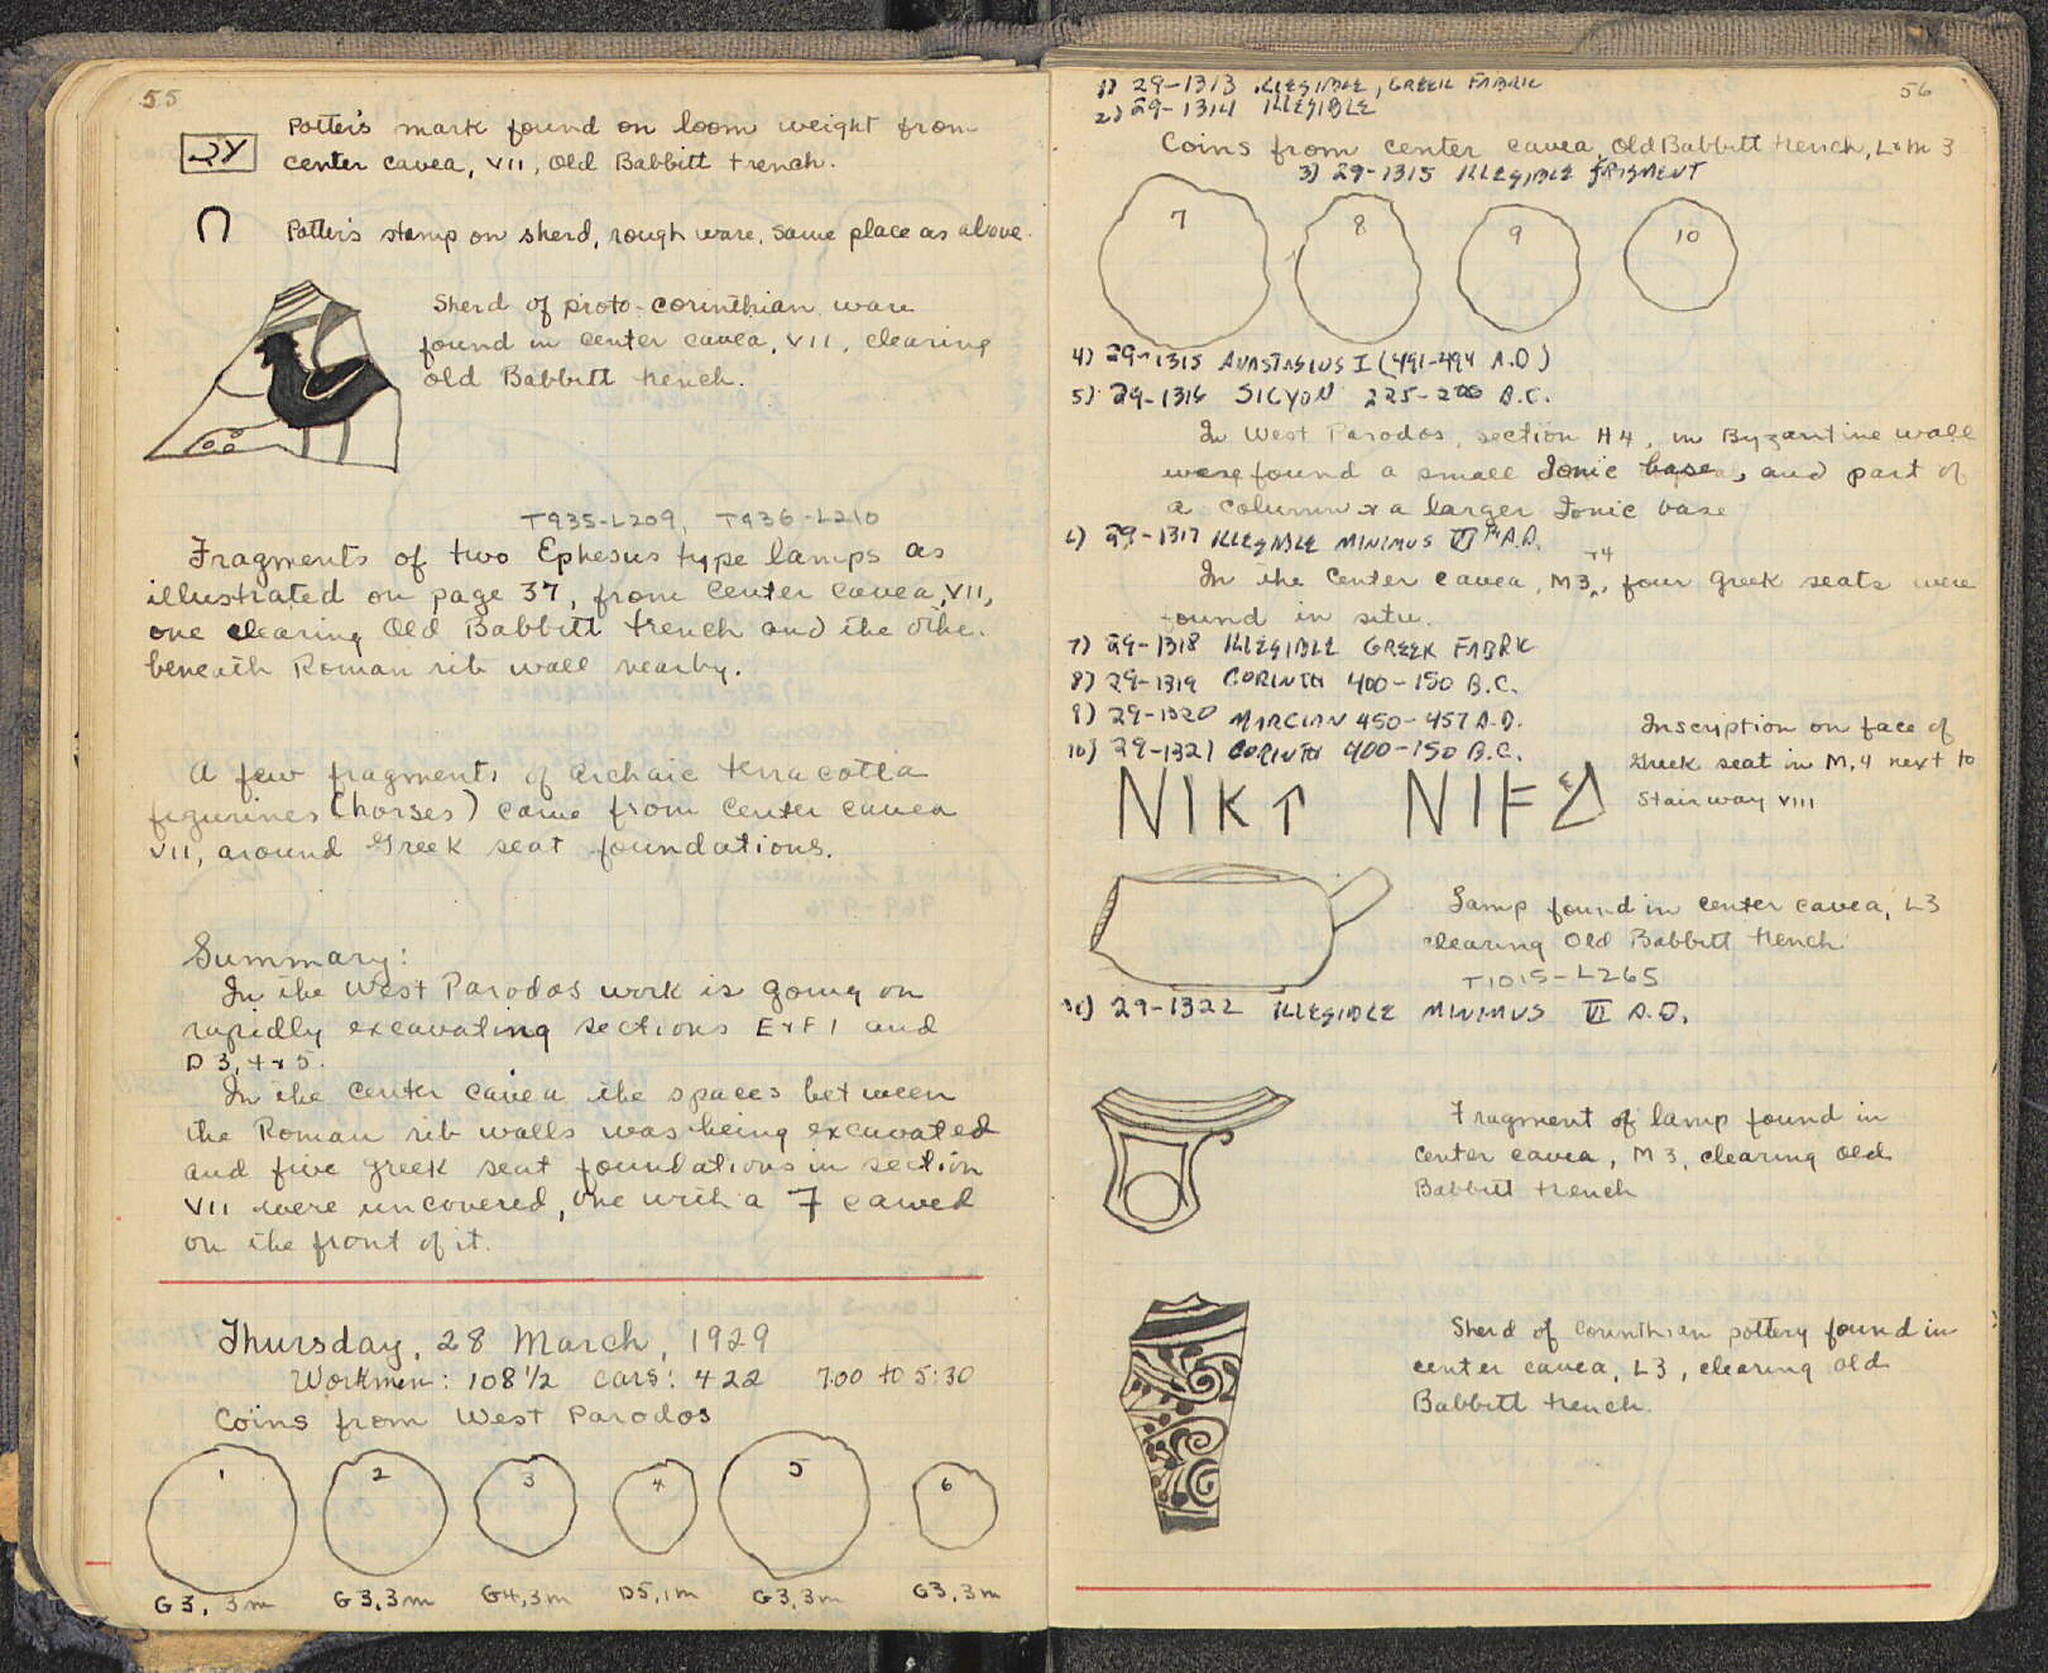 55
Potter's mark found on loom weight from
center cavea, VII, Old Babbitt trench.
Potter's stamp on sherd, rough ware, same place as above.
Sherd of proto-corinthian ware
found in center cavea, VII, clearing
old Babbitt trench.
T935-L209, T936-L210
Fragments of two Ephesus type lamps as
illustrated on page 37, from center cavea, VII,
one clearing Old Babbitt trench and the other
beneath Roman rib wall nearby.
A few fragments of archaic terracotta
figurines (horses) came from center cavea
VII, around Greek seat foundations.
Summary:
In the West Parodos work is going on
rapidly excavating sections E & F 1 and
D 3, 4 & 5.
In the center cavea the spaces between
the Roman rib walls was being excavated
and five greek seat foundations in section
VII were uncovered, one with a 7 carved
on the front of it.
Thursday, 28 March, 1929
Workmen: 108 1/2 cars: 422 7:00 to 5:30
Coins from West Parodos
1 2 3 4 5 6
G3, 3m G3, 3m G4, 3m D5, 1m G3, 3m G3, 3m
56
1) 29-1313 ILLEGIBLE, GREEK FABRIC
2) 29-1314 ILLEGIBLE
Coins from center cavea, Old Babbitt trench, L & M 3
3) 29-1315 ILLEGIBLE FRAGMENT
7 8 9 10
4) 29-1315 ANASTASIUS I (491-494 A.D)
5) 29-1316 SICYON 225-200 B.C.
In West Parodos, section H4, in Byzantine wall
were found a small Ionic base, and part of
a column & a larger Ionic base
6) 29-1317 ILLEGIBLE MINIMUS VI th A.D.
In the center cavea, M3 & 4, four greek seats were
found in situ.
7) 29-1318 ILLEGIBLE GREEK FABRIC
8) 29-1319 CORINTH 400-150 B.C.
9) 29-1320 MARCIAN 450-457 A.D.
10) 29-1321 CORINTH 400-150 B.C.
Inscription on face of
Greek seat in M, 4 next to
Stairway VIII
NIK↑ NIF
Lamp found in center cavea, L3
clearing Old Babbitt trench
T1015-L265
29-1322 ILLEGIBLE MINIMUS VI A.D.
Fragment of lamp found in
center cavea, M3, clearing old
Babbitt trench
Sherd of Corinthian pottery found in
center cavea, L3, clearing old
Babbitt trench.